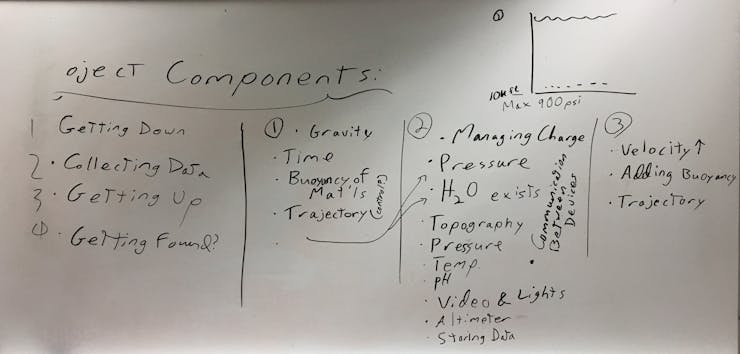 oject Components:
1 Getting Down
2 · Collecting Data
3 · Getting Up
· Getting Found?
① · Gravity
· Time
· Buoyancy of
Mat'ls
· Trajectory (control?)
② · Managing Charge
· Pressure
· H₂O exists
· Topography
· Pressure
· Temp.
· pH
· Video & Lights
· Altimeter
· Storing Data
· Communication
Between
Devices
Max 900psi
③
· Velocity ↑
· Adding Buoyancy
· Trajectory